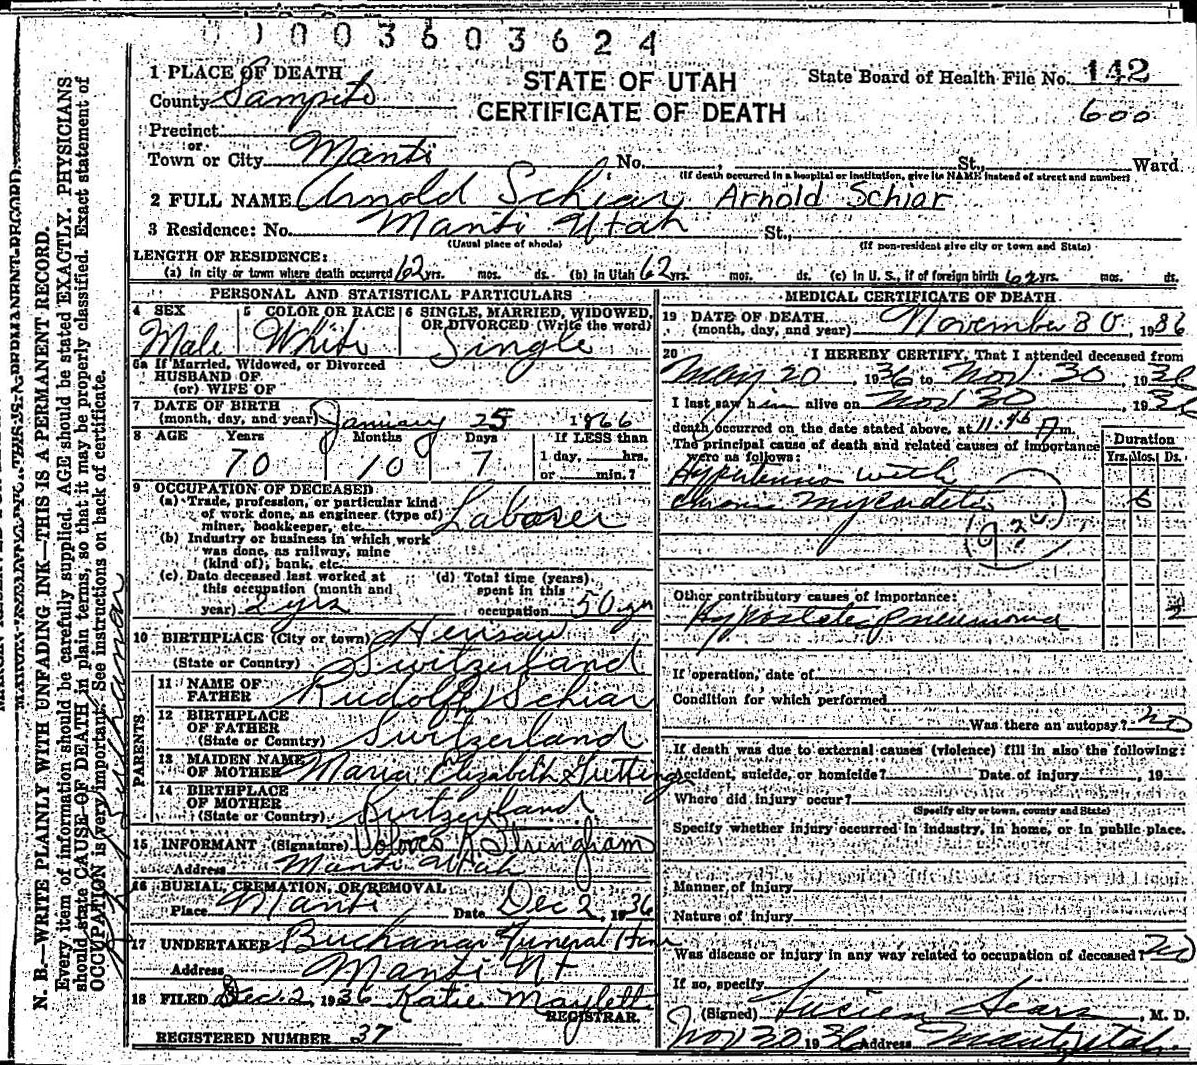 0 0 0 0 3 6 0 3 6 2 4
1 PLACE OF DEATH
STATE OF UTAH
CERTIFICATE OF DEATH
State Board of Health File No. 142
600
County Sanpete
Precinct
or
Town or City Manti No. St., Ward
(If death occurred in a hospital or institution, give its NAME instead of street and number)
2 FULL NAME Arnold Schiar Arnold Schiar
3 Residence: No. Manti Utah St.,
(Usual place of abode) (If non-resident give city or town and State)
LENGTH OF RESIDENCE:
(a) in city or town where death occurred 62 yrs. mos. ds. (b) in Utah 62 yrs. mos. ds. (c) in U. S., if of foreign birth 62 yrs. mos. ds.
PERSONAL AND STATISTICAL PARTICULARS
4 SEX Male
5 COLOR OR RACE White
6 SINGLE, MARRIED, WIDOWED, OR DIVORCED (Write the word) Single
6a If Married, Widowed, or Divorced
HUSBAND OF
(or) WIFE OF
7 DATE OF BIRTH
(month, day, and year) January 25 1866
8 AGE Years Months Days If LESS than
70 10 7 1 day, hrs.
or min.?
9 OCCUPATION OF DECEASED
(a) Trade, profession, or particular kind
of work done, as engineer (type of)
miner, bookkeeper, etc. Laborer
(b) Industry or business in which work
was done, as railway, mine
(kind of), bank, etc.
(c) Date deceased last worked at
this occupation (month and
year) 2 yrs
(d) Total time (years)
spent in this
occupation 50 yr
10 BIRTHPLACE (City or town) Herisau
(State or Country) Switzerland
PARENTS
11 NAME OF
FATHER Rudolph Schiar
12 BIRTHPLACE
OF FATHER
(State or Country) Switzerland
13 MAIDEN NAME
OF MOTHER Maria Elizabeth
14 BIRTHPLACE
OF MOTHER
(State or Country) Switzerland
15 INFORMANT (Signature) Stringham
Address Manti Utah
16 BURIAL, CREMATION, OR REMOVAL
Place Manti Date Dec 2, 1936
17 UNDERTAKER Buchanan Funeral Home
Address Manti Ut
18 FILED Dec. 2, 1936 Katie Maylett
REGISTRAR.
REGISTERED NUMBER 37
MEDICAL CERTIFICATE OF DEATH
19 DATE OF DEATH
(month, day, and year) November 30, 1936
20 I HEREBY CERTIFY, That I attended deceased from
May 20, 1936 to Nov. 30, 1936
I last saw him alive on Nov 30, 1936
death occurred on the date stated above, at 11.45 A m.
The principal cause of death and related causes of importance
were as follows:
Duration
Yrs. Mos. Ds.
Hypertension with
chronic myocarditis 6
Other contributory causes of importance:
Hypostatic pneumonia 2
If operation, date of
Condition for which performed
Was there an autopsy? no
If death was due to external causes (violence) fill in also the following:
Accident, suicide, or homicide? Date of injury, 19
Where did injury occur?
(Specify city or town, county and State)
Specify whether injury occurred in industry, in home, or in public place.
Manner of injury
Nature of injury
Was disease or injury in any way related to occupation of deceased? no
If so, specify
(Signed) Lucien Sears, M. D.
Nov 30 1936 Address Manti, Utah.
N. B.—WRITE PLAINLY WITH UNFADING INK—THIS IS A PERMANENT RECORD.
Every item of information should be carefully supplied. AGE should be stated EXACTLY. PHYSICIANS
should state CAUSE OF DEATH in plain terms, so that it may be properly classified. Exact statement of
OCCUPATION is very important. See instructions on back of certificate.